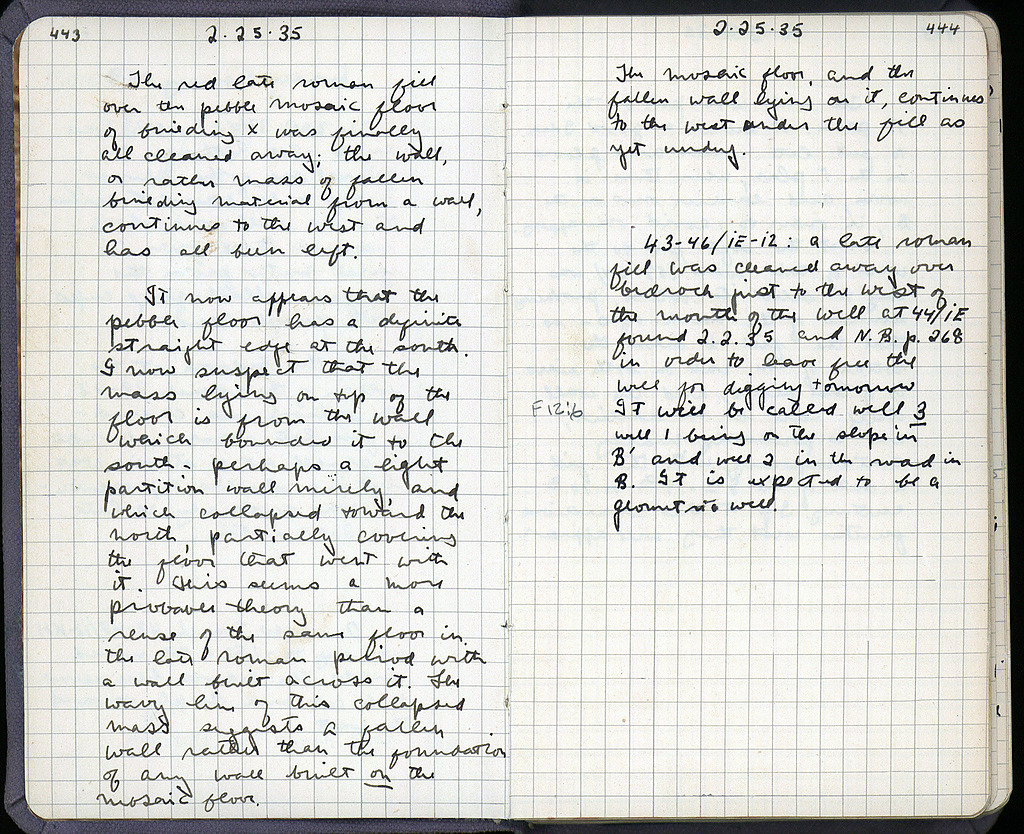 443
2·25·35
The red late roman fill
over the pebble mosaic floor
of building X was finally
all cleaned away; the wall,
or rather mass of fallen
building material from a wall,
continues to the west and
has all been left.
It now appears that the
pebble floor has a definite
straight edge at the south.
I now suspect that the
mass lying on top of the
floor is from the wall
which bounded it to the
south - perhaps a light
partition wall merely, and
which collapsed toward the
north, partially covering
the floor that went with
it. This seems a more
probable theory than a
reuse of the same floor in
the late roman period with
a wall built across it. The
wavy line of this collapsed
mass suggests a fallen
wall rather than the foundation
of any wall built on the
mosaic floor.
2·25·35
444
The mosaic floor, and the
fallen wall lying on it, continues
to the west under the fill as
yet undug.
43-46/ΙΕ-ΙΖ: a late roman
fill was cleaned away over
bedrock just to the west of
the mouth of the well at 44/ΙΕ
found 2.2.35 and N.B. p. 268
in order to leave free the
well for digging tomorrow
F 12:6
It will be called well 3
well 1 being on the slope in
B' and well 2 in the road in
B. It is expected to be a
geometric well.